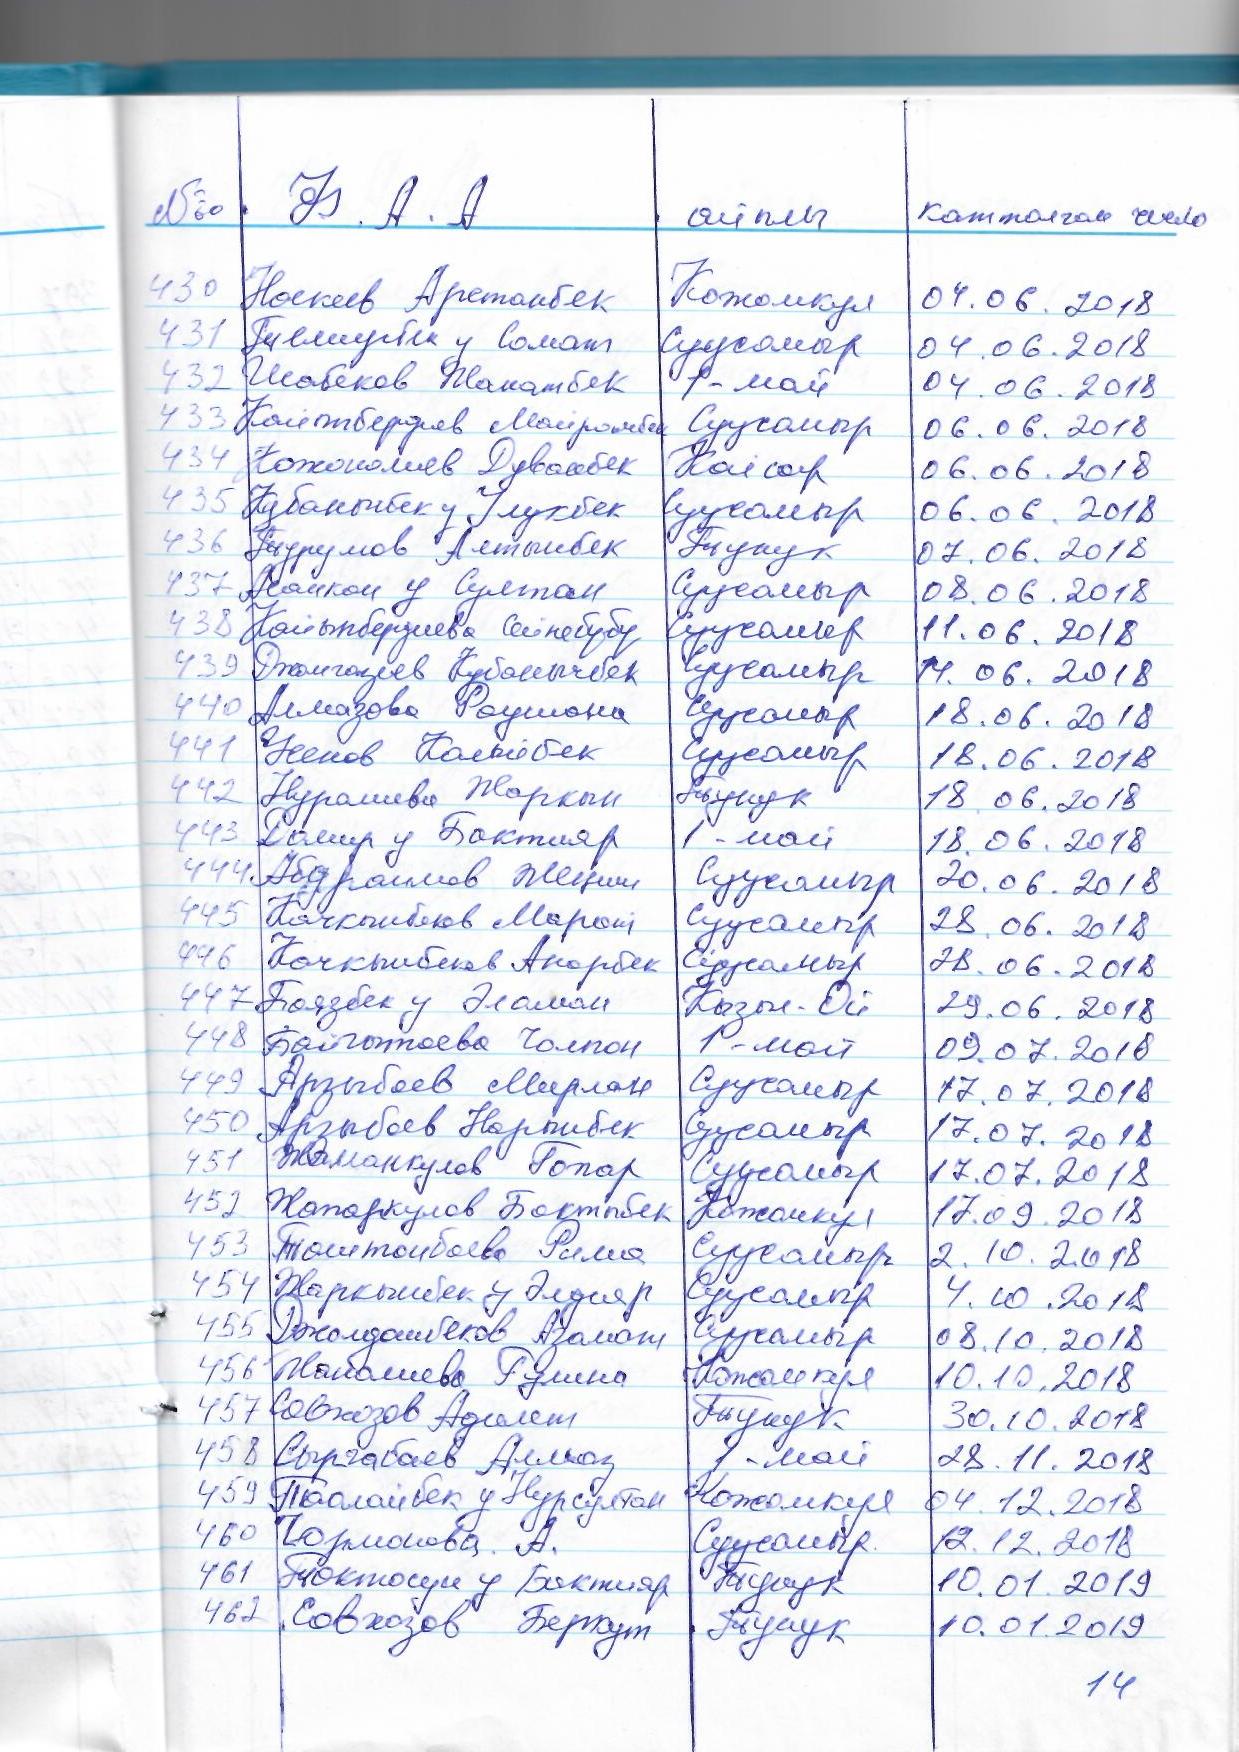 № Ф.А.А айылы катталган число
430 Носкеев Арстанбек Кожомкул 04.06.2018
431 у Самат Суусамыр 04.06.2018
432 Шабеков Жанатбек 1-май 04.06.2018
433 Кайыпбердиев Майрамбек Суусамыр 06.06.2018
434 Кожоналиев Дуванбек Кайсар 06.06.2018
435 Кубанычбек у Улукбек Суусамыр 06.06.2018
436 Алтынбек Тунук 07.06.2018
437 у Султан Суусамыр 08.06.2018
438 Кайыпбердиева Сейнебубу Суусамыр 11.06.2018
439 Джангазиев Кубанычбек Суусамыр 14.06.2018
440 Алмазова Раушана Суусамыр 18.06.2018
441 Усенов Калыбек Суусамыр 18.06.2018
442 Нуралиева Жаркын Тунук 18.06.2018
443 Дамир у Бактияр 1-май 18.06.2018
444 Абдраимов Жениш Суусамыр 20.06.2018
445 Качкынбеков Марат Суусамыр 28.06.2018
446 Качкынбеков Анарбек Суусамыр 28.06.2018
447 Баязбек у Эламан Кызыл-Ой 29.06.2018
448 Байгытаева Чолпон 1-май 09.07.2018
449 Арзыбаев Мирлан Суусамыр 17.07.2018
450 Арзыбаев Нарынбек Суусамыр 17.07.2018
451 Жаманкулов Топар Суусамыр 17.07.2018
452 Жапаркулов Бактыбек Кожомкул 17.09.2018
453 Таштанбаева Рима Суусамыр 2.10.2018
454 Жаркынбек у Элдияр Суусамыр 4.10.2018
455 Джолдошбеков Азамат Суусамыр 08.10.2018
456 Жапалиева Гулина Кожомкул 10.10.2018
457 Совхозов Адилет Тунук 30.10.2018
458 Сыргабаев Алмаз 1-май 28.11.2018
459 Таалайбек у Нурсултан Кожомкул 04.12.2018
460 Чозмонова А. Суусамыр 12.12.2018
461 Токтосун у Бактияр Тунук 10.01.2019
462 Совхозов Беркут Тунук 10.01.2019
14